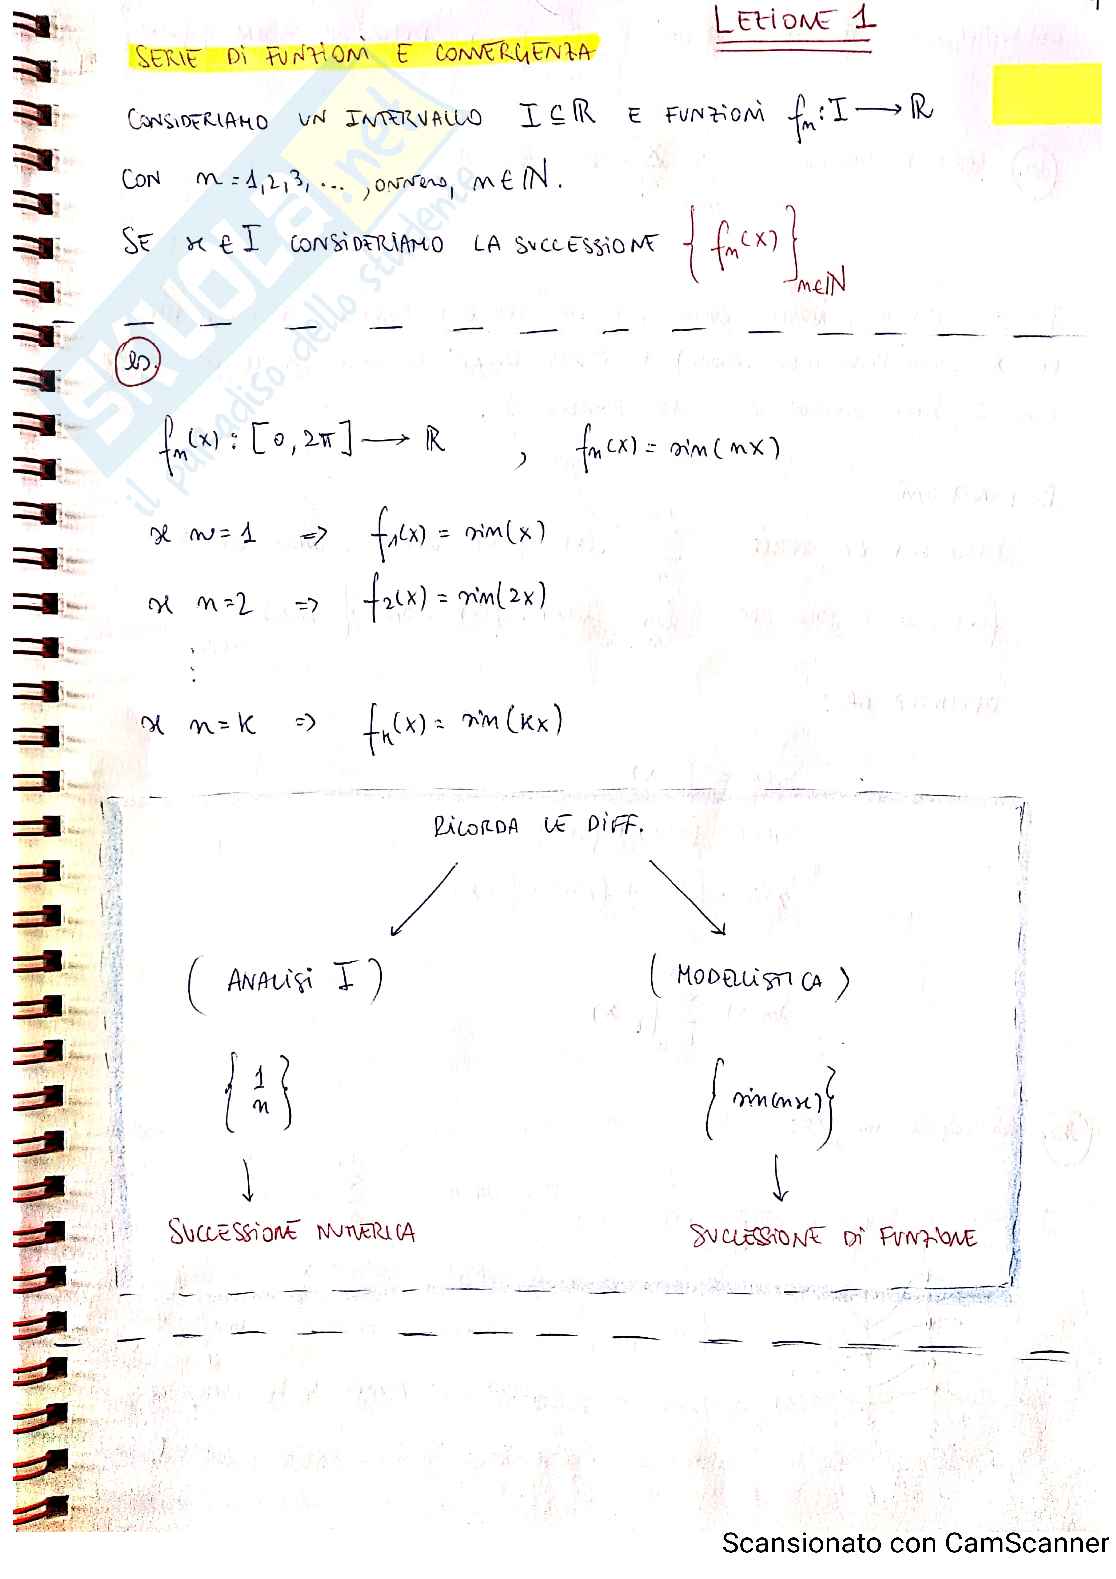 LEZIONE 1
SERIE DI FUNZIONI E CONVERGENZA
CONSIDERIAMO UN INTERVALLO I ⊆ ℝ E FUNZIONI fn : I → ℝ
CON n = 1, 2, 3, ..., ovvero, n ∈ ℕ.
SE x ∈ I CONSIDERIAMO LA SUCCESSIONE { fn(x) } n∈ℕ
es.
fn(x) : [0, 2π] → ℝ , fn(x) = sin(nx)
se n = 1 => f1(x) = sin(x)
se n = 2 => f2(x) = sin(2x)
⋮
se n = k => fk(x) = sin(kx)
RICORDA LE DIFF.
(ANALISI I) (MODELLISTICA)
{ 1/n } { sin(nx) }
↓ ↓
SUCCESSIONE NUMERICA SUCCESSIONE DI FUNZIONE
SKUOLA.net
il paradiso dello studente
Scansionato con CamScanner